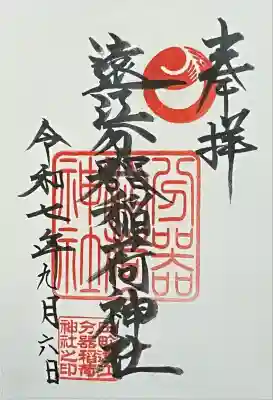 奉拝
遠江分器稲荷神社
令和七年九月六日
分器
稲荷
神社
分器稲荷
神社之印